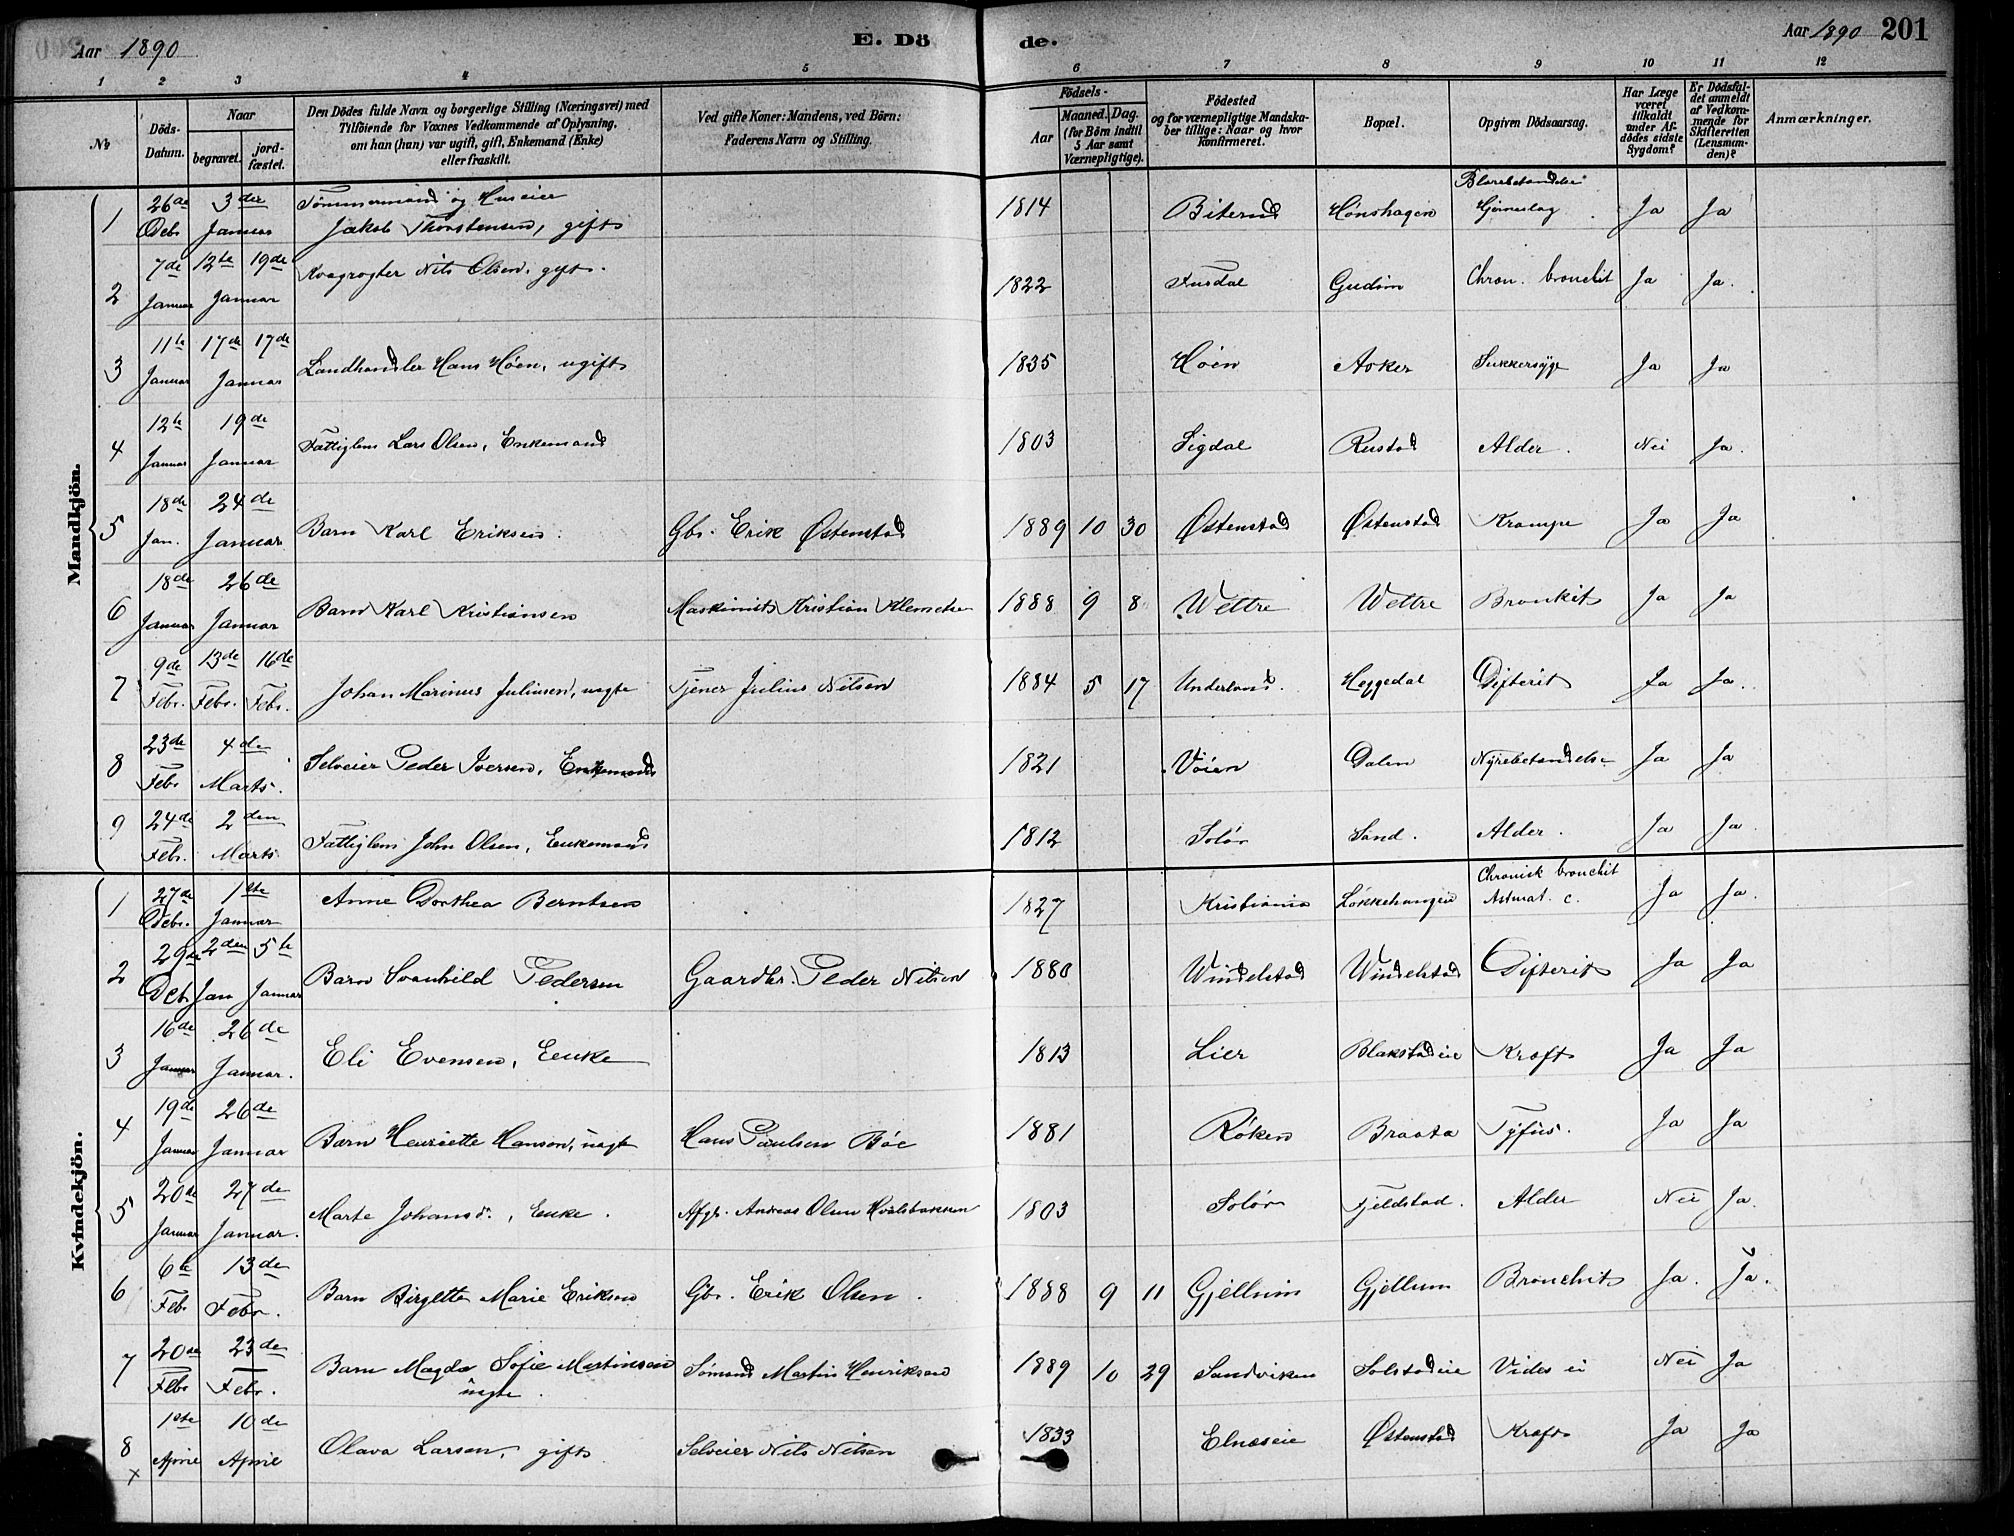 Aar 1890 E. Dö de. Aar 1890 201
1 2 3 4 5 6 7 8 9 10 11 12
№ Döds-Datum. Naar begravet. jordfæstet. Den Dödes fulde Navn og borgerlige Stilling (Næringsvei) med Tilföiende for Voxnes Vedkommende af Oplysning, om han (hun) var ugift, gift, Enkemand (Enke) eller fraskilt. Ved gifte Koner: Mandens, ved Börn: Faderens Navn og Stilling. Födsels- Aar Maaned. Dag. (for Börn indtil 5 Aar samt Værnepligtige). Födested og for værnepligtige Mandskaber tillige: Naar og hvor konfirmeret. Bopæl. Opgiven Dödsaarsag. Har Læge været tilkaldt under Afdödes sidste Sygdom? Er Dödsfaldet anmeldt af Vedkommende for Skifteretten (Lensmanden)? Anmærkninger.
Mandkjön.
1 26de Debr 3der Januar Tømmermand og Huseier Jakob Thorstensen, gift 1814 Biterud Hönshagen Hjerneslag Ja Ja
2 7de Januar 12te 19de Januar Kvægrøgter Nils Olsen, gift. 1822 Fusdal Gudim Chron. bronchit Ja Ja.
3 11te Januar 17de 17de Januar Landhandler Hans Höen, ugift 1835 Höen Asker Sukkersyge Ja Ja
4 12te Januar 19de Januar Fattiglem Lars Olsen, Enkemand 1803 Sigdal Rustad Alder. Nei Ja.
5 18de Jan. 24de Januar Barn Karl Eriksen. Gbr. Erik Østenstad 1889 10 30 Østenstad Østenstad Krampe Ja Ja
6 18de Januar 26de Januar Barn Karl Kristiansen Maskinist Kristian Klemetsen 1888 9 8 Wettre Wettre Bronkit Ja Ja
7 9de Febr. 13de Febr. 16de Febr. Johan Marinus Juliusen, uægte Tjener Julius Nilsen 1884 5 17 Underland. Heggedal Difterit Ja Ja.
8 23de Febr 4de Marts. Selveier Peder Iversen, Enkemand 1821 Vöien Dalen Nyrebetændelse Ja Ja
9 24de Febr. 2den Marts Fattiglem John Olsen, Enkemand 1812 Solör Sand. Alder. Ja Ja.
Kvindekjön.
1 27de Debr. 1ste Januar Anne Dorthea Berntsen 1827 Kristiania Løkkehaugen Chronisk bronchit Astmat. c. Ja Ja.
2 29de Deb. 2den Jan 5te Januar Barn Svanhild Pedersen Gaardbr. Peder Nilsen 1880 Windelstad Windelstad Difterit Ja Ja
3 16de Januar 26de Januar. Eli Evensen, Enke 1813 Lier Blakstadeie Kræft Ja Ja
4 19de Januar 26de Januar Barn Henriette Hanson, uægt Hans Paulsen Böe 1881 Røken Braata Tyfus. Ja Ja
5 20de Januar 27de Januar. Marte Johansd., Enke. Afgb. Andreas Olsen Hvalsbakken 1803 Solör Fjeldstad. Alder Nei Ja.
6 6te Febr 13de Febr. Barn Birgitte Marie Eriksen Gbr. Erik Olsen. 1888 9 11 Gjellum Gjellum Bronchit Ja. Ja.
7 20de Febr 23de Febr. Barn Magda Sofie Martinsen uægte. Sømand Martin Henriksen 1889 10 29 Sandviken Solstadeie Vides ei Nei Ja
8 x 1ste April 10de April Olava Larsen, gift Selveier Nils Nilsen 1833 Elnæseie Østenstad Kræft Ja Ja